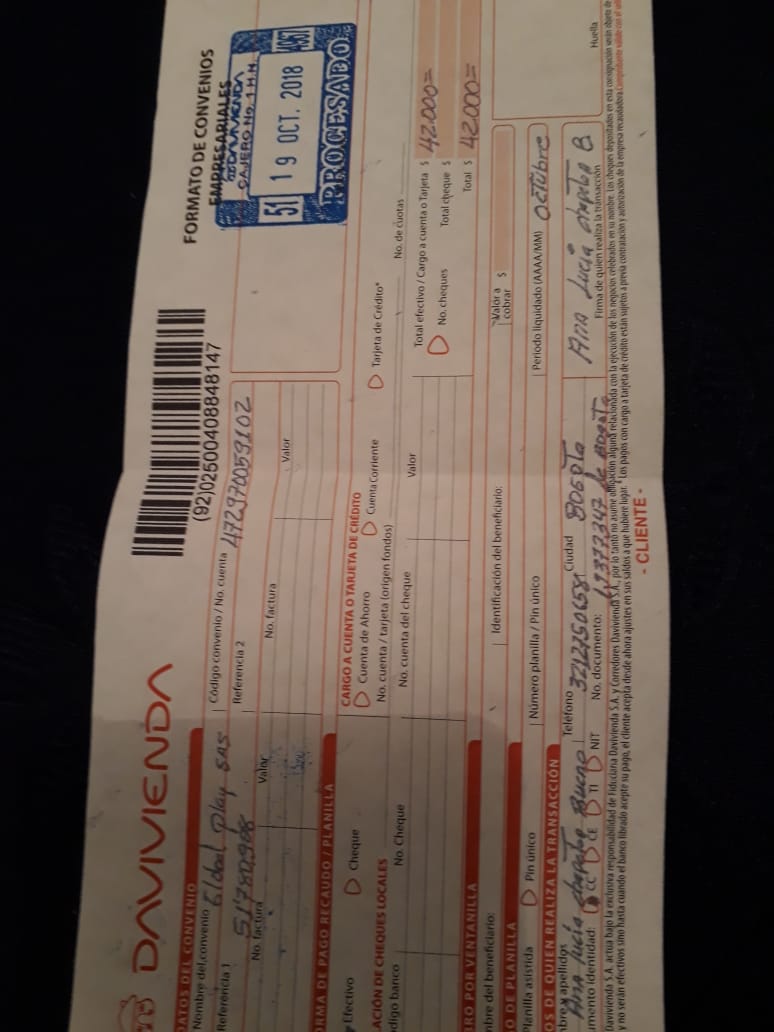 DAVIVIENDA
(92)02500408848147
FORMATO DE CONVENIOS
EMPRESARIALES
DAVIVIENDA
CAJERO No. 1 H.N.
51 19 OCT. 2018 4967
PROCESADO
DATOS DEL CONVENIO
Nombre del convenio Eldad Play SAS
Código convenio / No. cuenta 472970059102
Referencia 1 51'780.968
Referencia 2
No. factura Valor No. factura Valor
RMA DE PAGO RECAUDO / PLANILLA
Efectivo Cheque
CARGO A CUENTA O TARJETA DE CRÉDITO
Cuenta de Ahorro Cuenta Corriente Tarjeta de Crédito*
No. cuenta / tarjeta (origen fondos) No. de cuotas
ACIÓN DE CHEQUES LOCALES
digo banco No. Cheque No. cuenta del cheque Valor
Total efectivo / Cargo a cuenta o Tarjeta $ 42.000=
No. cheques Total cheque $
Total $ 42.000=
RO POR VENTANILLA
mbre del beneficiario: Identificación del beneficiario: Valor a cobrar $
O DE PLANILLA
lanilla asistida Pin único Número planilla / Pin único Periodo liquidado (AAAA/MM) Octubre
OS DE QUIEN REALIZA LA TRANSACCIÓN
mbre y apellidos Ana Lucia Bueno
Teléfono 3212750658 Ciudad Bogota
mento identidad: CC CE TI NIT No. documento: de Bogota
Ana Lucia B
Firma de quien realiza la transacción
Huella
Davivienda S.A. actúa bajo la exclusiva responsabilidad de Fiduciaria Davivienda S.A. y Corredores Davivienda S.A., por lo tanto no asume obligación alguna relacionada con la ejecución de los negocios celebrados en su nombre. Los cheques depositados en esta consignación serán objeto de
no serán efectivos sino hasta cuando el banco librado acepte su pago, el cliente acepta desde ahora ajustes en sus saldos a que hubiere lugar. * Los pagos con cargo a tarjeta de crédito están sujetos a previa contratación y autorización de la empresa recaudadora.
- CLIENTE -